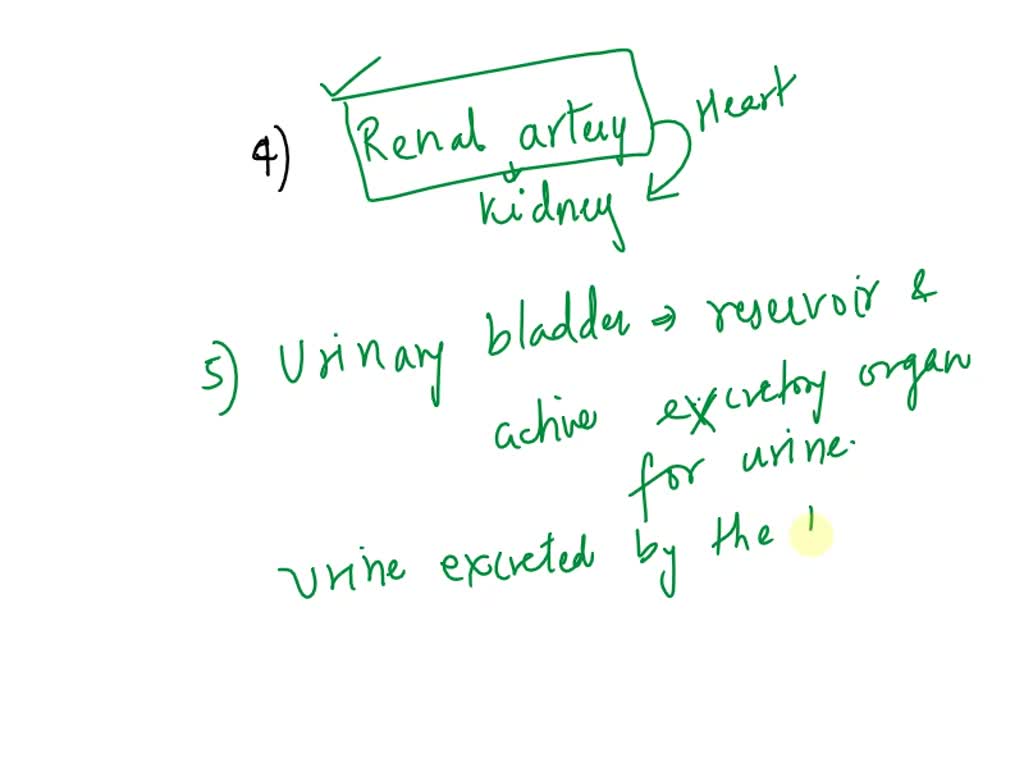 4) Renal artery Heart
kidney
5) Urinary bladder ⇒ reservoir &
active excretory organ
for urine.
urine excreted by the